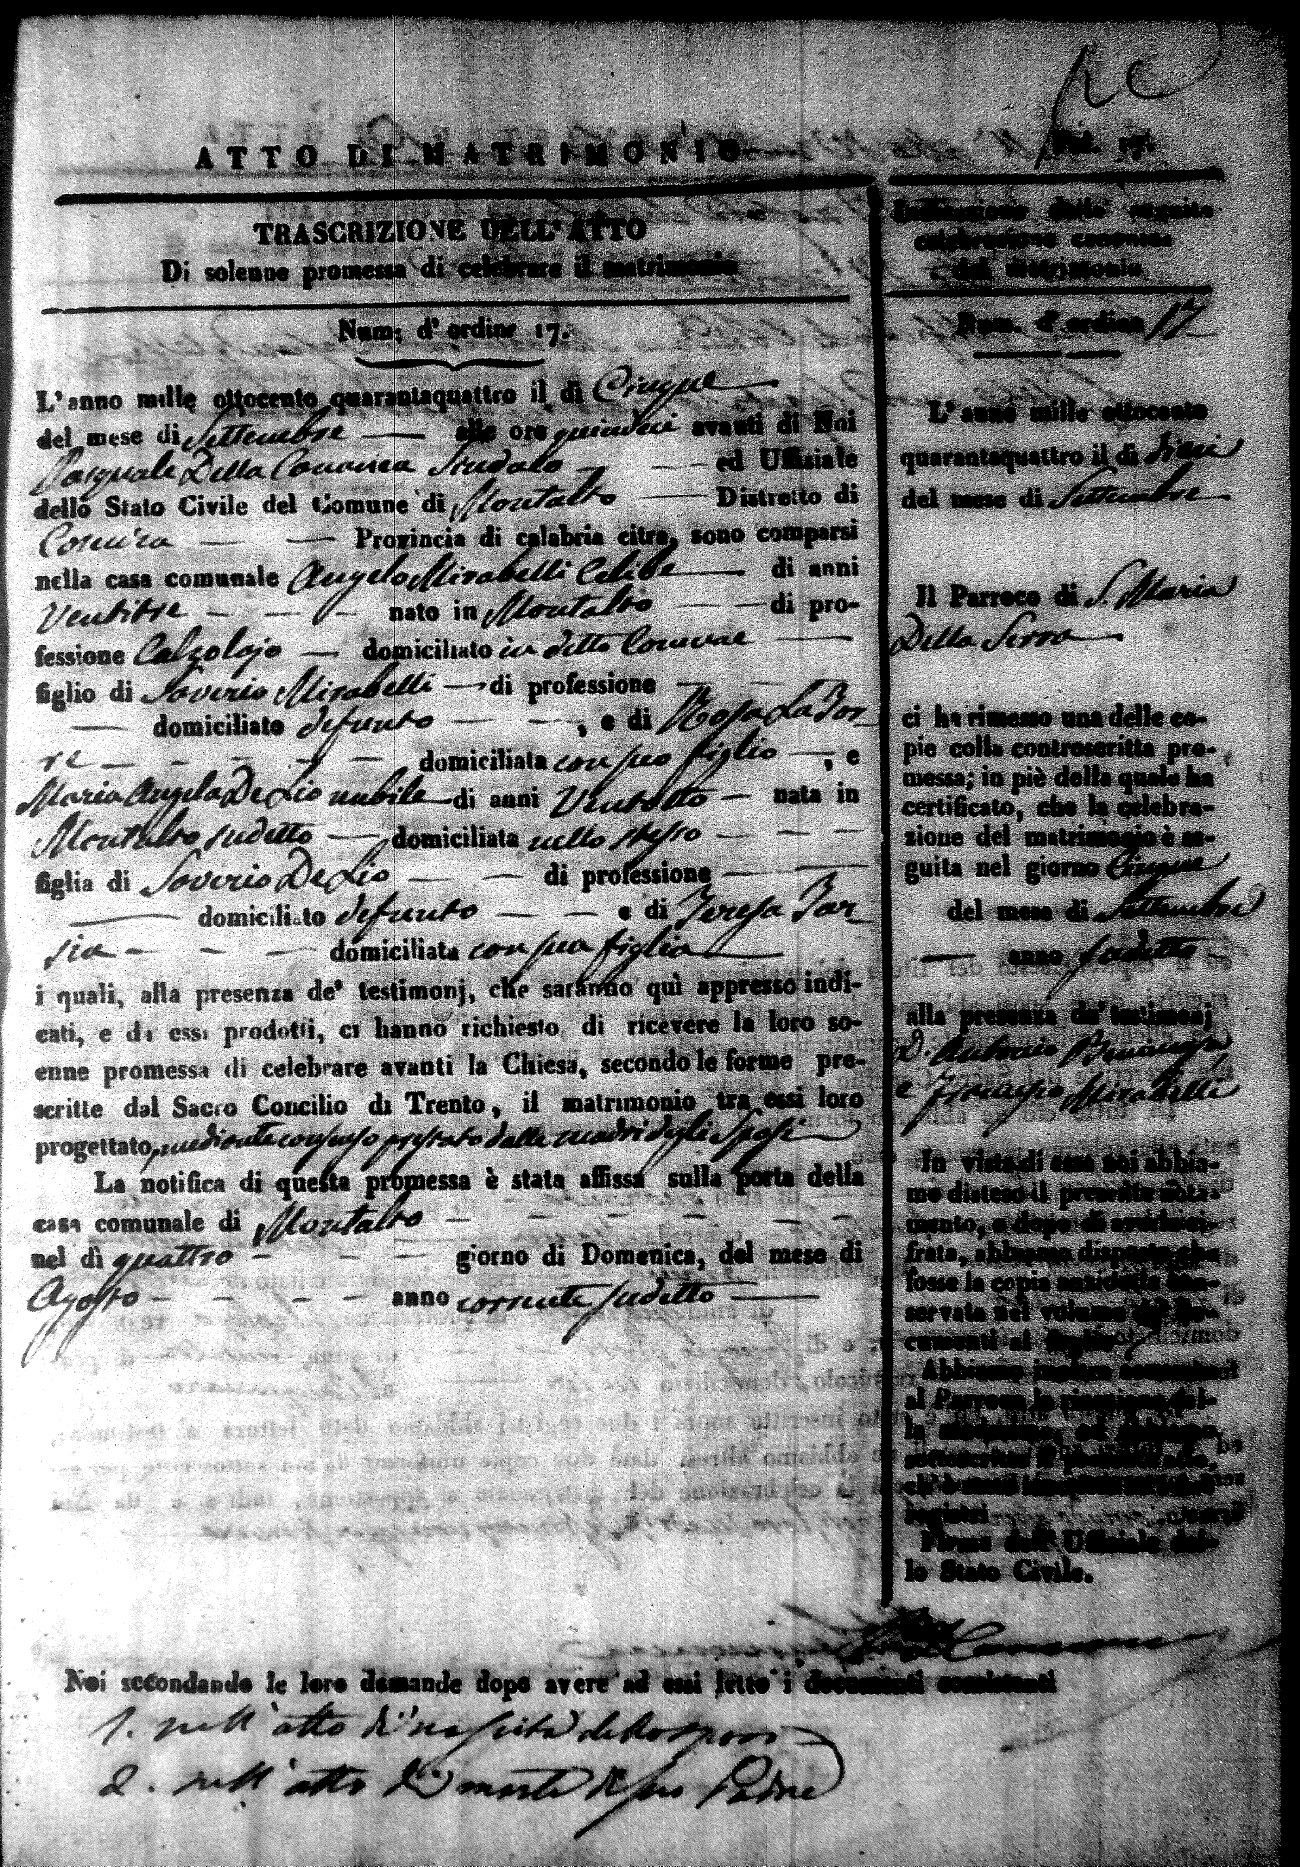 ATTO DI MATRIMONIO
TRASCRIZIONE DELL'ATTO
Di solenne promessa di celebrare il matrimonio
Num: d'ordine 17.
L'anno mille ottocento quarantaquattro il dì Cinque
del mese di Settembre alle ore quindici avanti di Noi
Pasquale Della Cananea Sindaco ed Uffiziale
dello Stato Civile del Comune di Montalto Distretto di
Cosenza Provincia di calabria citra, sono comparsi
nella casa comunale Angelo Mirabelli Celibe di anni
Ventitre nato in Montalto di pro-
fessione Calzolajo domiciliato in detto Comune
figlio di Saverio Mirabelli di professione
domiciliato defunto , e di Rosa La Tor
re domiciliata con suo figlio , e
Maria Angela De Lio nubile di anni Ventotto nata in
Montalto sudetto domiciliata nello stesso
figlia di Saverio De Lio di professione
domiciliato defunto e di Teresa Tar
sia domiciliata con sua figlia
i quali, alla presenza de' testimonj, che saranno quì appresso indi-
cati, e da essi prodotti, ci hanno richiesto di ricevere la loro so-
enne promessa di celebrare avanti la Chiesa, secondo le forme pre-
scritte dal Sacro Concilio di Trento, il matrimonio tra essi loro
progettato, mediante consenso prestato dalle madri degli Sposi
La notifica di questa promessa è stata affissa sulla porta della
casa comunale di Montalto
nel dì quattro giorno di Domenica, del mese di
Agosto anno corrente sudetto
Indicazione della seguita
celebrazione canonica
del matrimonio
Num. d'ordine 17
L'anno mille ottocento
quarantaquattro il dì dieci
del mese di Settembre
Il Parroco di S. Maria
Della Serra
ci ha rimesso una delle co-
pie colla controscritta pro-
messa; in piè della quale ha
certificato, che la celebra-
zione del matrimonio è se-
guita nel giorno Cinque
del mese di Settembre
anno sudetto
alla presenza de' testimonj
D. Antonio
e Francesco Mirabelli
In vista di essa noi abbia-
mo disteso il presente nota-
mento, e dopo di averla ci-
frata, abbiamo disposto che
fosse la copia anzidetta con-
servata nel volume de' do-
cumenti al foglio
Abbiamo inoltre accusato
al Parroco la ricezione del-
la medesima, ed abbiamo
sottoscritto il presente atto,
ch'è stato inscritto su i due
registri
Firma dell'Uffiziale del-
lo Stato Civile.
Noi secondando le loro demande dopo avere ad essi letto i documenti consistenti
1. nell'atto di nascita dello sposo
2. nell'atto di morte di suo Padre